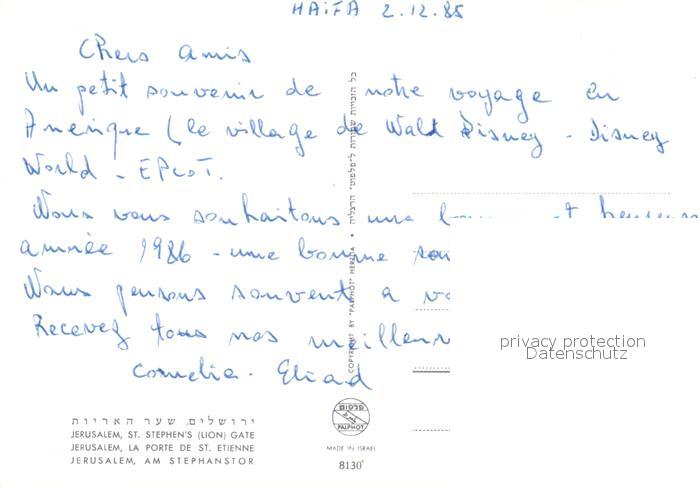 HAIFA 2.12.85
Chers amis
Un petit souvenir de notre voyage en
Amérique (le village de Walt Disney - Disney
World - EPCOT.
Nous vous souhaitons une bonne et heureuse
année 1986 - une bonne
Nous pensons souvent a
Recevez tous nos meilleurs
Cornelia - Eliad
כל הזכויות שמורות ל"פלפוט" הרצליה • COPYRIGHT BY "PALPHOT" HERZLIA
privacy protection
Datenschutz
ירושלים, שער האריות
JERUSALEM, ST. STEPHEN'S (LION) GATE
JERUSALEM, LA PORTE DE ST. ETIENNE
JERUSALEM, AM STEPHANSTOR
פלפוט
PALPHOT
MADE IN ISRAEL
8130